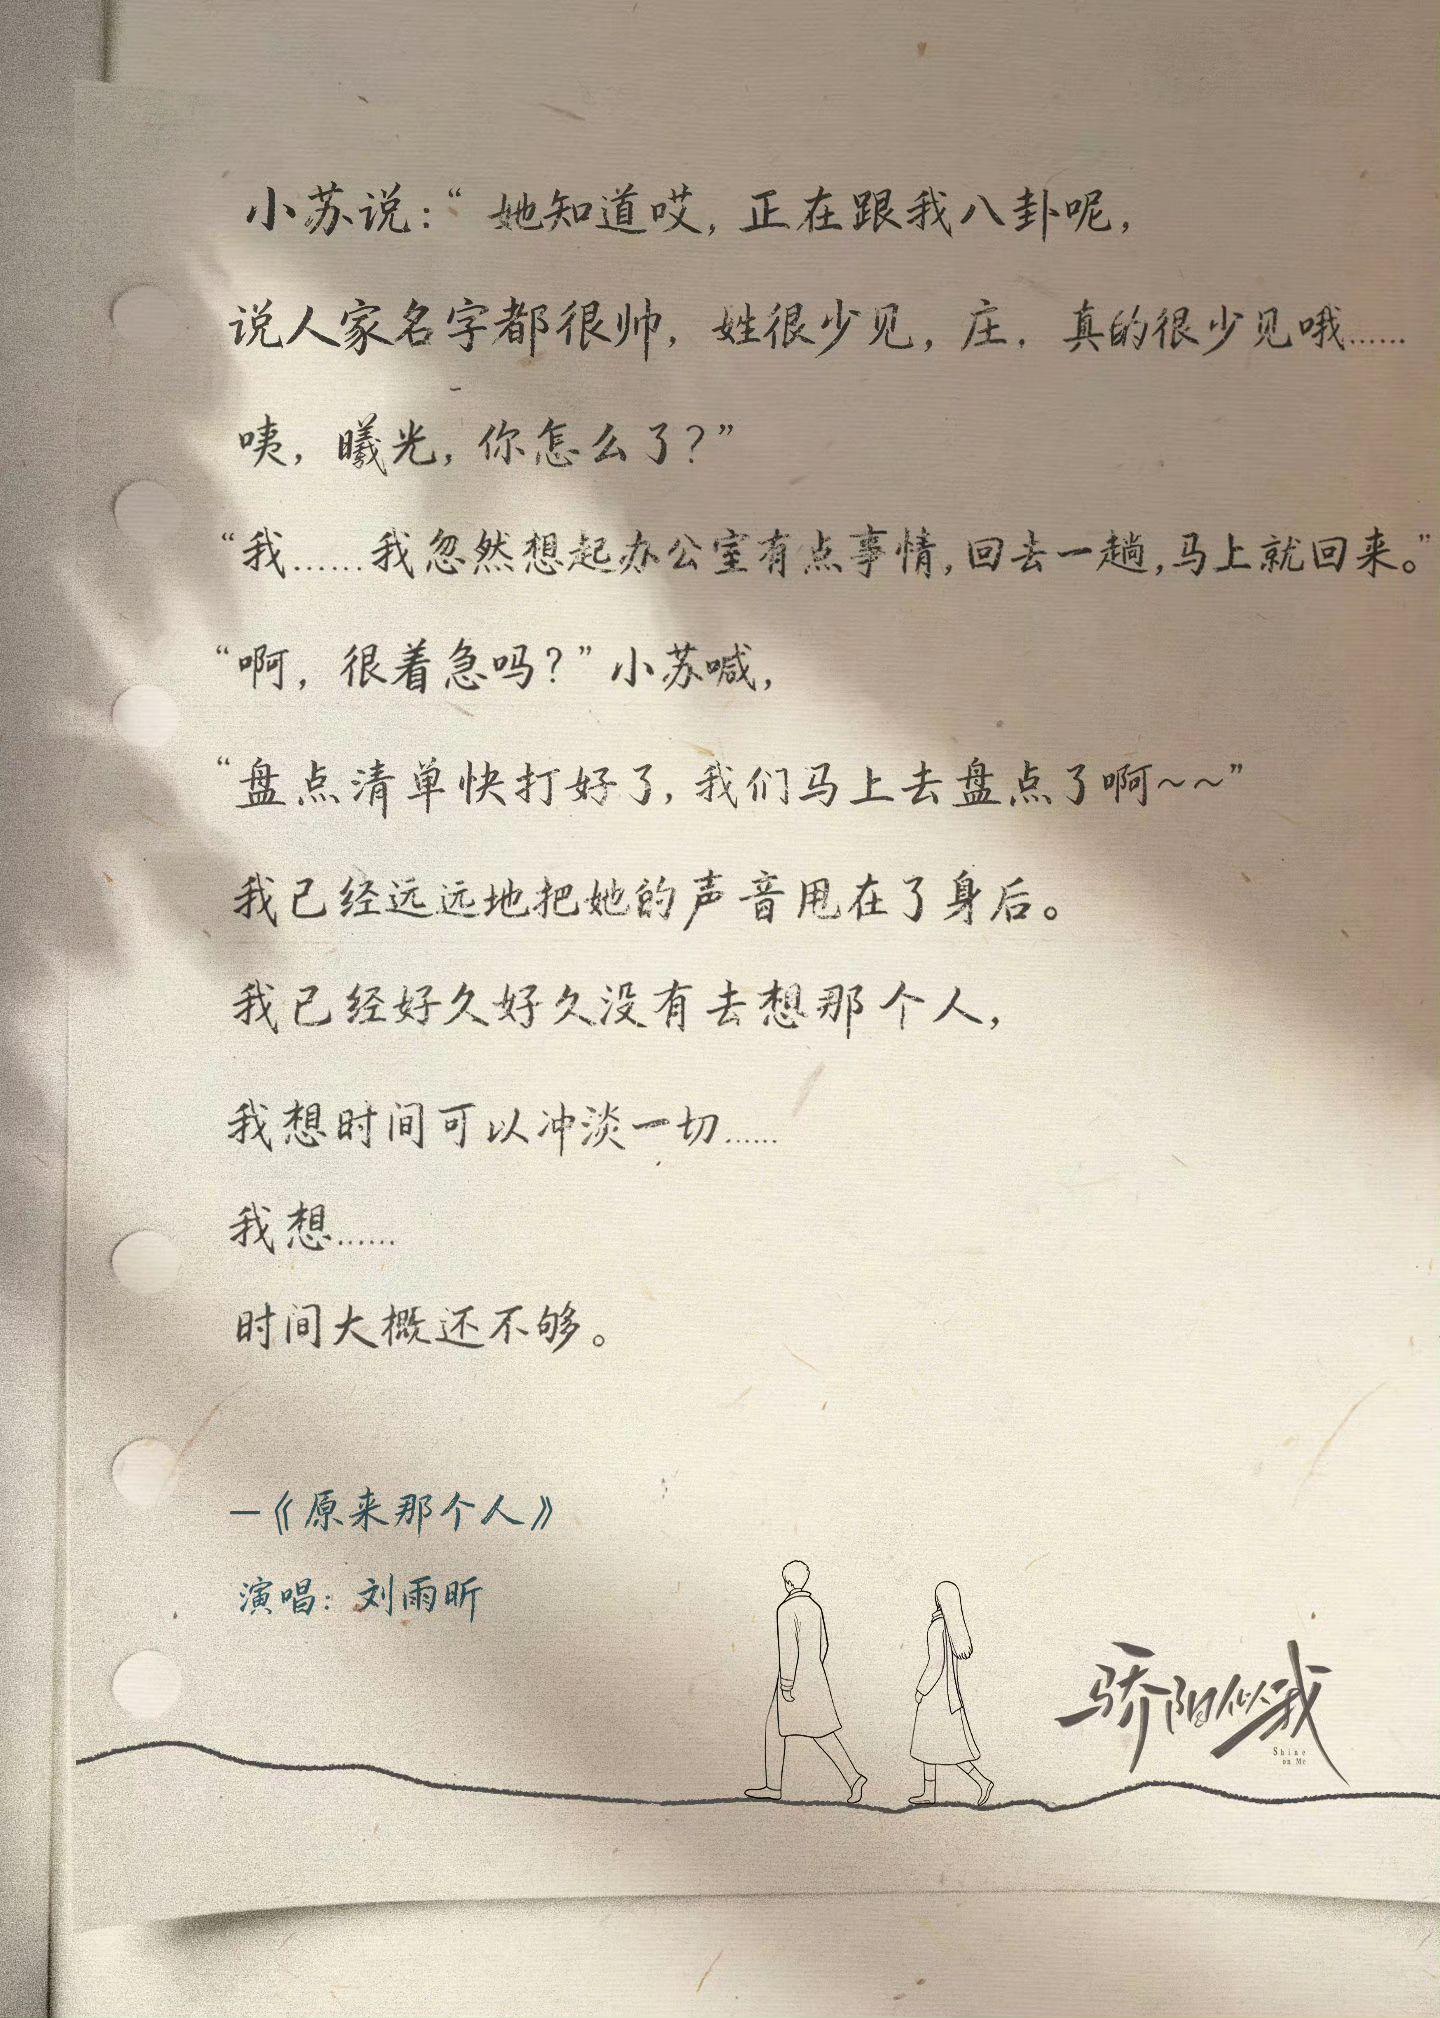 小苏说：“她知道哎，正在跟我八卦呢，
说人家名字都很帅，姓很少见，庄，真的很少见哦……
咦，曦光，你怎么了？”
“我……我忽然想起办公室有点事情，回去一趟，马上就回来。”
“啊，很着急吗？”小苏喊，
“盘点清单快打好了，我们马上去盘点了啊~~”
我已经远远地把她的声音甩在了身后。
我已经好久好久没有去想那个人，
我想时间可以冲淡一切……
我想……
时间大概还不够。
—《原来那个人》
演唱：刘雨昕
骄阳似我
Shine
on Me